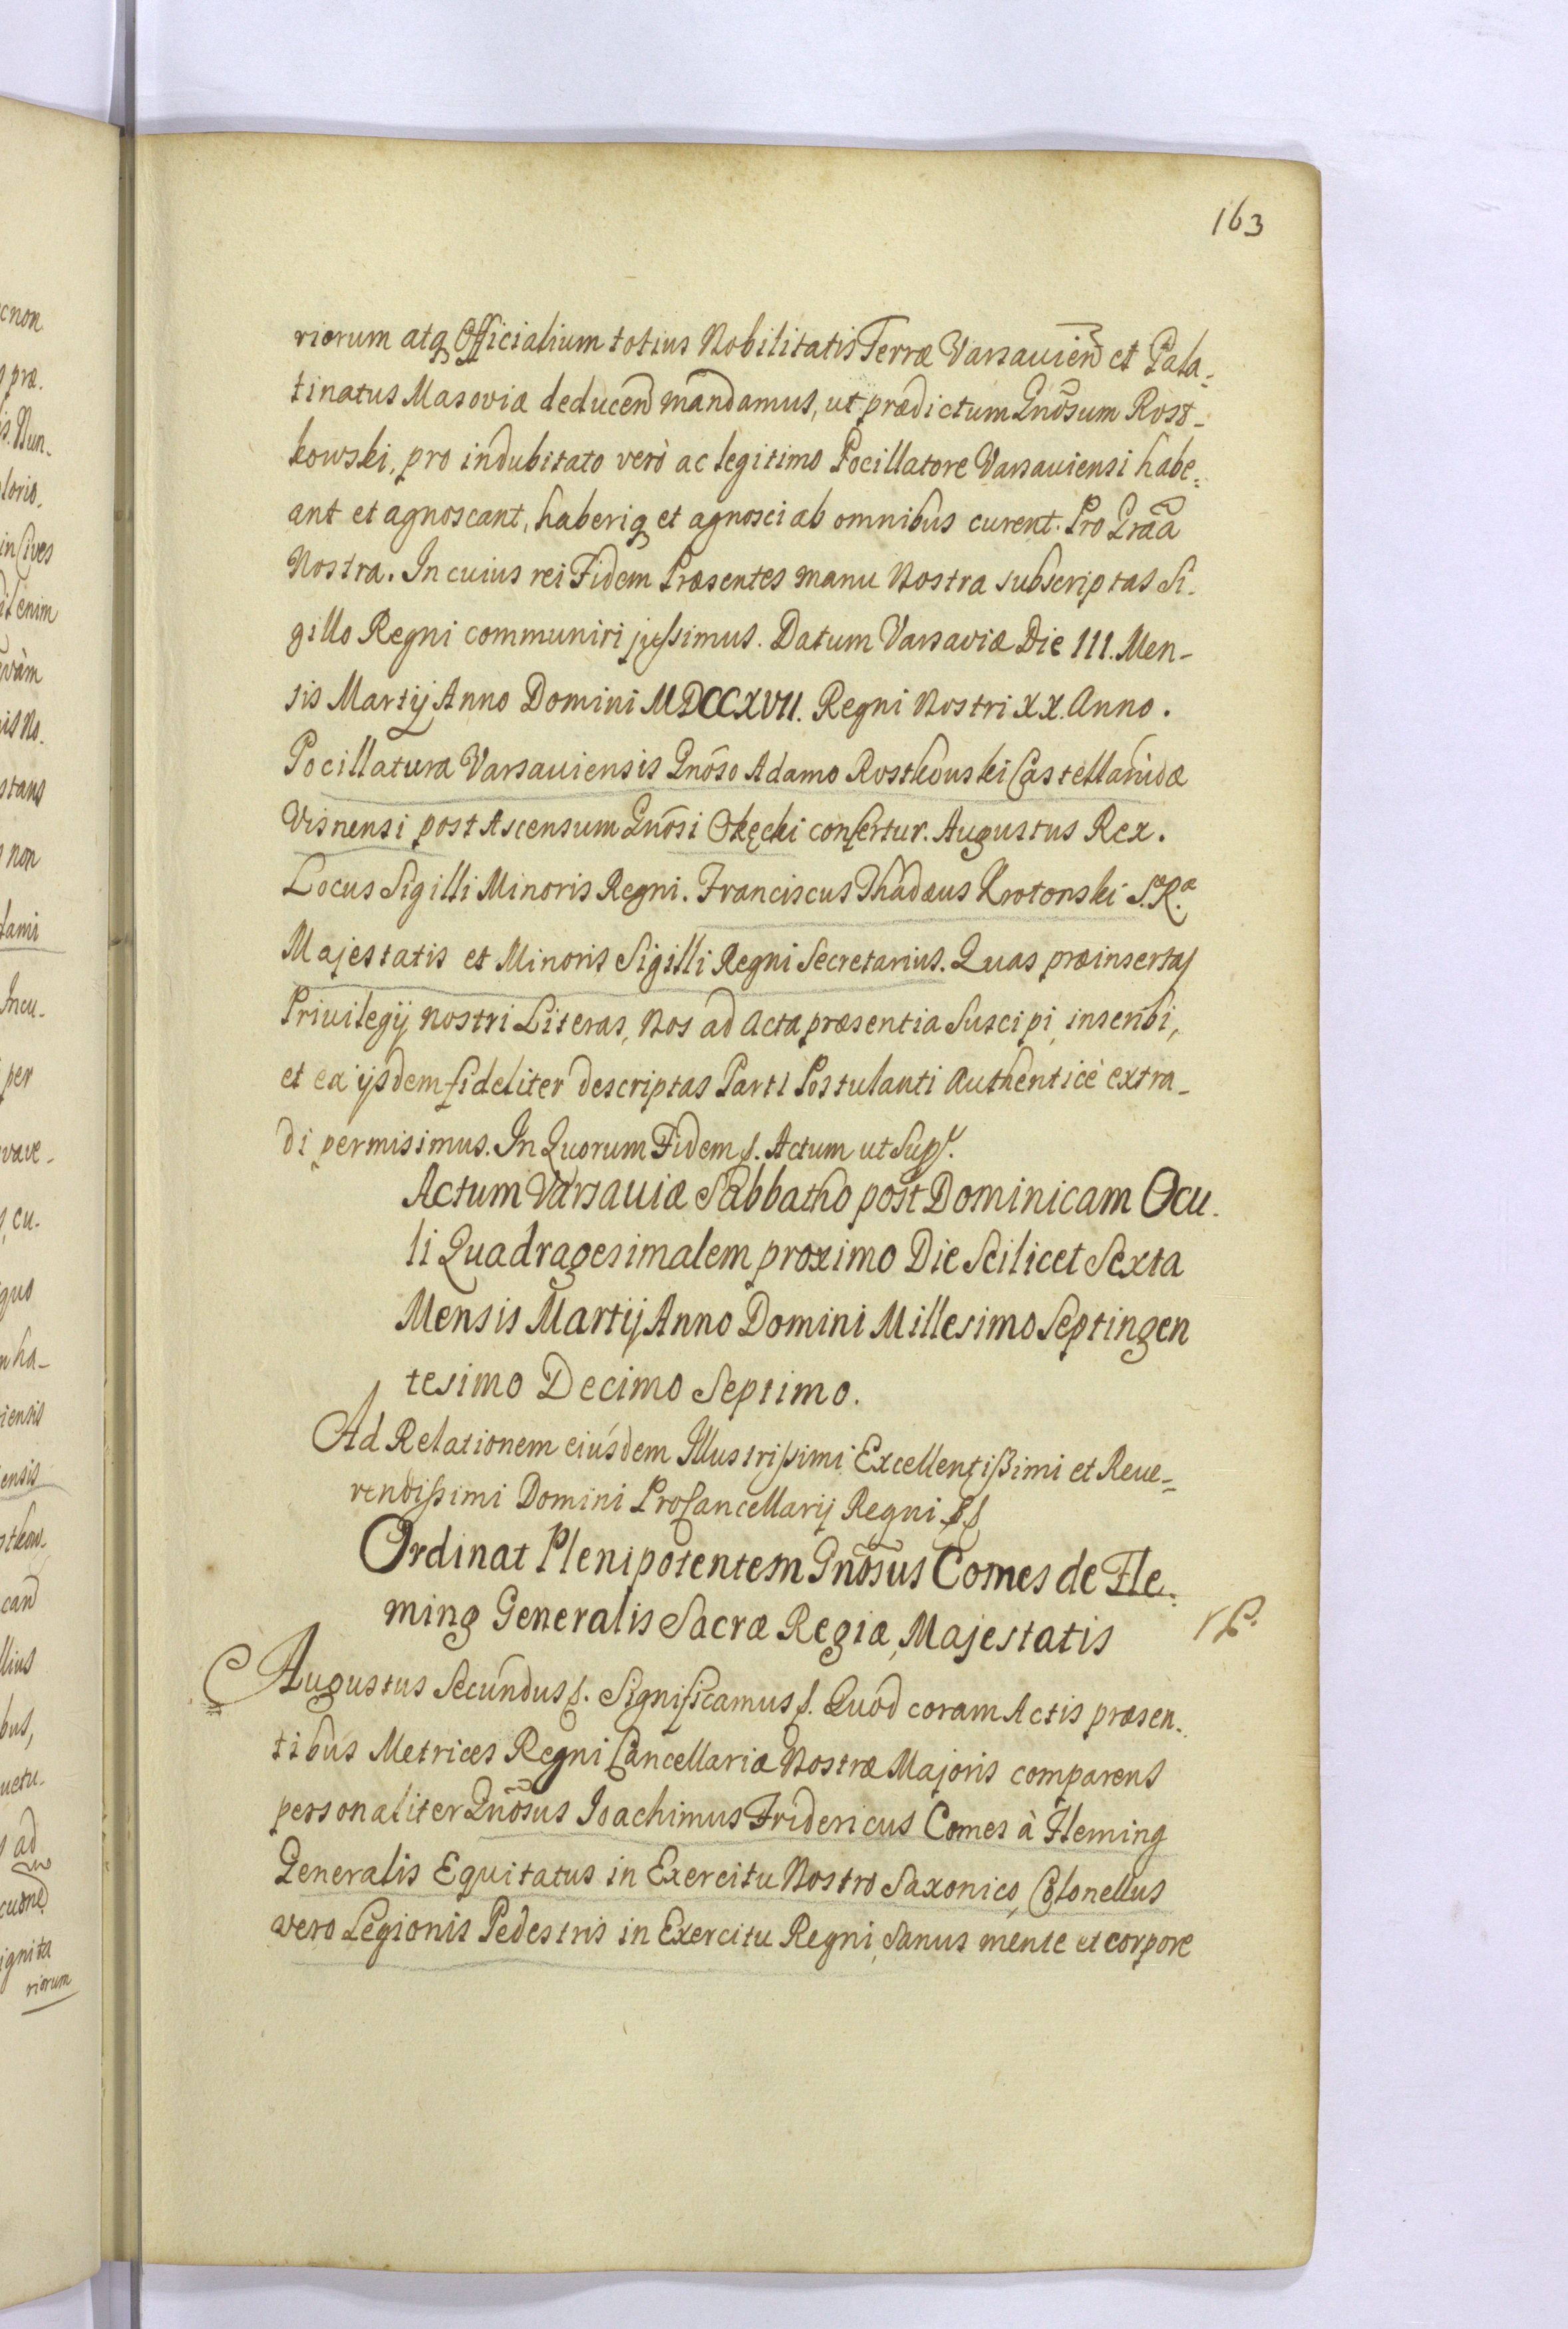 163
riorum atq Officialium totius Nobilitatis Terræ Varsavien et Pala-
tinatus Masoviæ deducen mandamus, ut prædictum Gnosum Rost-
kowski, pro indubitato verò ac legitimo Pocillatore Varsaviensi habe-
ant et agnoscant, haberiq et agnosci ab omnibus curent. Pro Graa
Nostra. In cuius rei Fidem Præsentes manu Nostra subscriptas Si-
gillo Regni communiri jussimus. Datum Varsaviæ Die III. Men-
sis Martij Anno Domini MDCCXVII. Regni Nostri XX. Anno.
Pocillatura Varsaviensis Gnoso Adamo Rostkouski Castellanidæ
Visnensi post Ascensum Gnosi Okęcki confertur. Augustus Rex.
Locus Sigilli Minoris Regni. Franciscus Thadæus Krotonski S.R.
Majestatis et Minoris Sigilli Regni Secretarius. Quas præinsertas
Privilegij nostri Literas, Nos ad Acta præsentia Suscipi, inscribi,
et ex ijsdem fideliter descriptas Parti Postulanti Authenticè extra-
di permisimus. In Quorum Fidem. Actum ut Sup.
Actum Varsaviæ Sabbatho post Dominicam Ocu-
li Quadragesimalem proximo Die Scilicet Sexta
Mensis Martij Anno Domini Millesimo Septingen
tesimo Decimo Septimo.
Ad Relationem eiusdem Illustrissimi Excellentissimi et Reve-
rendissimi Domini ProCancellarij Regni
Ordinat Plenipotentem Gnosus Comes de Fle-
ming Generalis Sacræ Regiæ Majestatis
Augustus Secundus. Significamus. Quod coram Actis præsen-
tibus Metrices Regni Cancellariæ Nostræ Majoris comparens
personaliter Gnosus Ioachimus Fridericus Comes à Fleming
Generalis Equitatus in Exercitu Nostro Saxonico, Colonellus
vero Legionis Pedestris in Exercitu Regni, Sanus mente et corpore